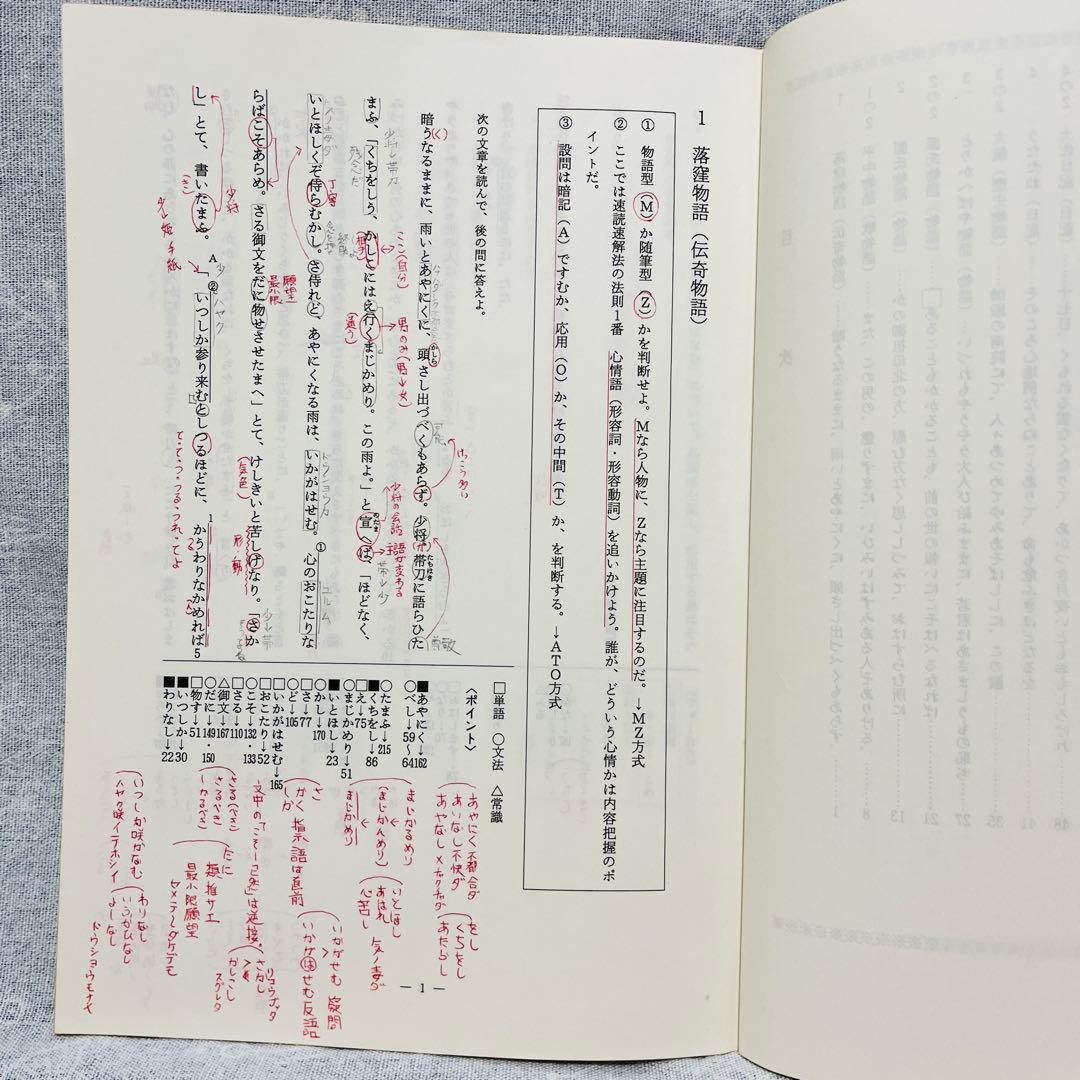 1　落窪物語（伝奇物語）
① 物語型（M）か随筆型（Z）かを判断せよ。Mなら人物に、Zなら主題に注目するのだ。→MZ方式
② ここでは速読速解法の法則1番　心情語（形容詞・形容動詞）を追いかけよう。誰が、どういう心情かは内容把握のポ
イントだ。
③ 設問は暗記（A）ですむか、応用（O）か、その中間（T）か、を判断する。→ATO方式
次の文章を読んで、後の問に答えよ。
暗うなるままに、雨いとあやにくに、頭さし出づべくもあらず。少将、帯刀に語らひた
まふ、「くちをしう、かしこにはえ行くまじかめり。この雨よ。」と宣へば、「ほどなく、
いとほしくぞ侍らむかし。さ侍れど、あやにくなる雨は、いかがはせむ。①心のおこたりな
らばこそあらめ。さる御文をだに物せさせたまへ」とて、けしきいと苦しげなり。「さか
し」とて、書いたまふ。A「②いつしか参り来むとしつるほどに、1かうわりなかめれば5
□単語　○文法　△常識
〈ポイント〉
■あやにく→162
○べし→59〜64
○たまふ→215
■くちをし→86
□え→75
○まじかめり→51
■いとほし→23
○かし→170
□さ→77
○ど→105
□いかがはせむ→165
□おこたり→52
○こそ→132・133
□さる→110
△御文→167
○だに→149・150
□物す→51
■いつしか→30
■わりなし→22
あやにく 不都合ダ
あいなし 不快ダ
あやなし
をし
くちをし
あたらし
まじかるめり
(まじかんめり)
まじかめり
いとほし
あはれ
心苦し
気ノ毒ダ
さ
しか
かく 指示語は直前
いかがせむ 疑問
いかがはせむ 反語
文中の「こそ―已然」は逆接、
さかし
かしこし
スグレタ
さるべき
しかるべき
だに
類推サエ
最小限願望
セメテ〜ダケデモ
いつしか咲かなむ
ハヤク咲イテホシイ
わりなし
いふかひなし
よしなし
ドウショウモナイ
少将の会話
主語が変わる
ここ(自分)
(相手)
男のみ(男→女)
(通う)
けっこう多い
可能
尊敬
丁寧
願望
最小限
(気色)
形・動
少将
少→姫 手紙
て・て・つ・つる・つれ・てよ
少将→帯刀
残念だ
帯→少
少→帯
ハヤク
— 1 —